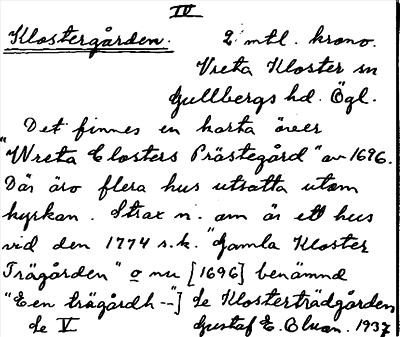 IV
Klostergården. 2 mtl. krono.
Vreta Kloster sn
Gullbergs hd. Ögl.
Det finnes en karta över
"Wreta Closters Prästegård" av 1696.
Där äro flera hus utsatta utom
kyrkan. Strax n. om är ett hus
vid den 1774 s.k. "Gamla Kloster
Trägården" o nu [1696] benämnd
"Een trägårdh--"] se Klosterträdgården
se V Gustaf E. 1937